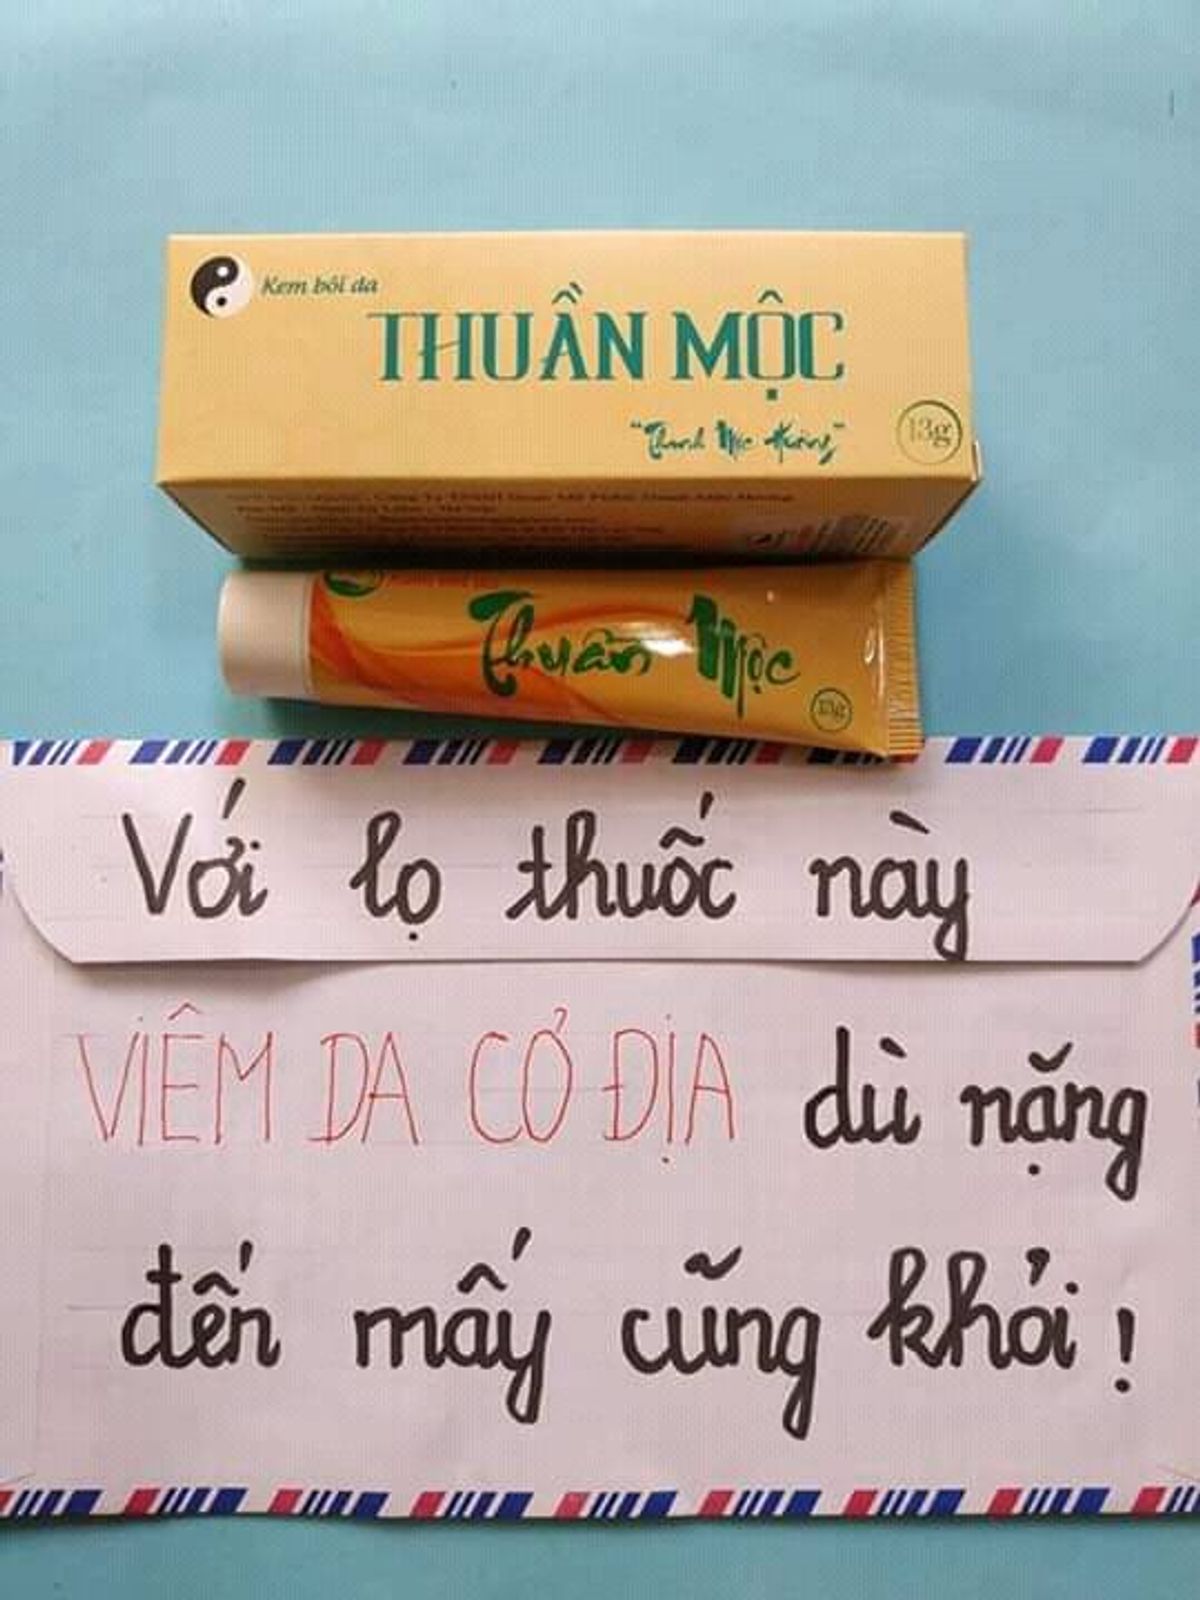 Kem bôi da
THUẦN MỘC
"Thanh Mộc Hương"
13g
Thuần Mộc
13g
Với lọ thuốc này
VIÊM DA CƠ ĐỊA dù nặng
đến mấy cũng khỏi!